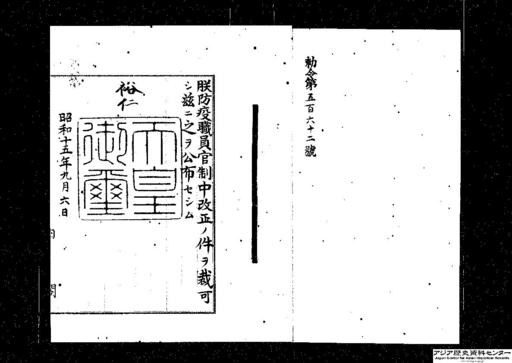 勅令第五百六十二號
朕防疫職員官制中改正ノ件ヲ裁可
シ茲ニ之ヲ公布セシム
裕仁
天皇御璽
昭和十五年九月六日
内 閣
アジア歴史資料センター
Japan Center for Asian Historical Records